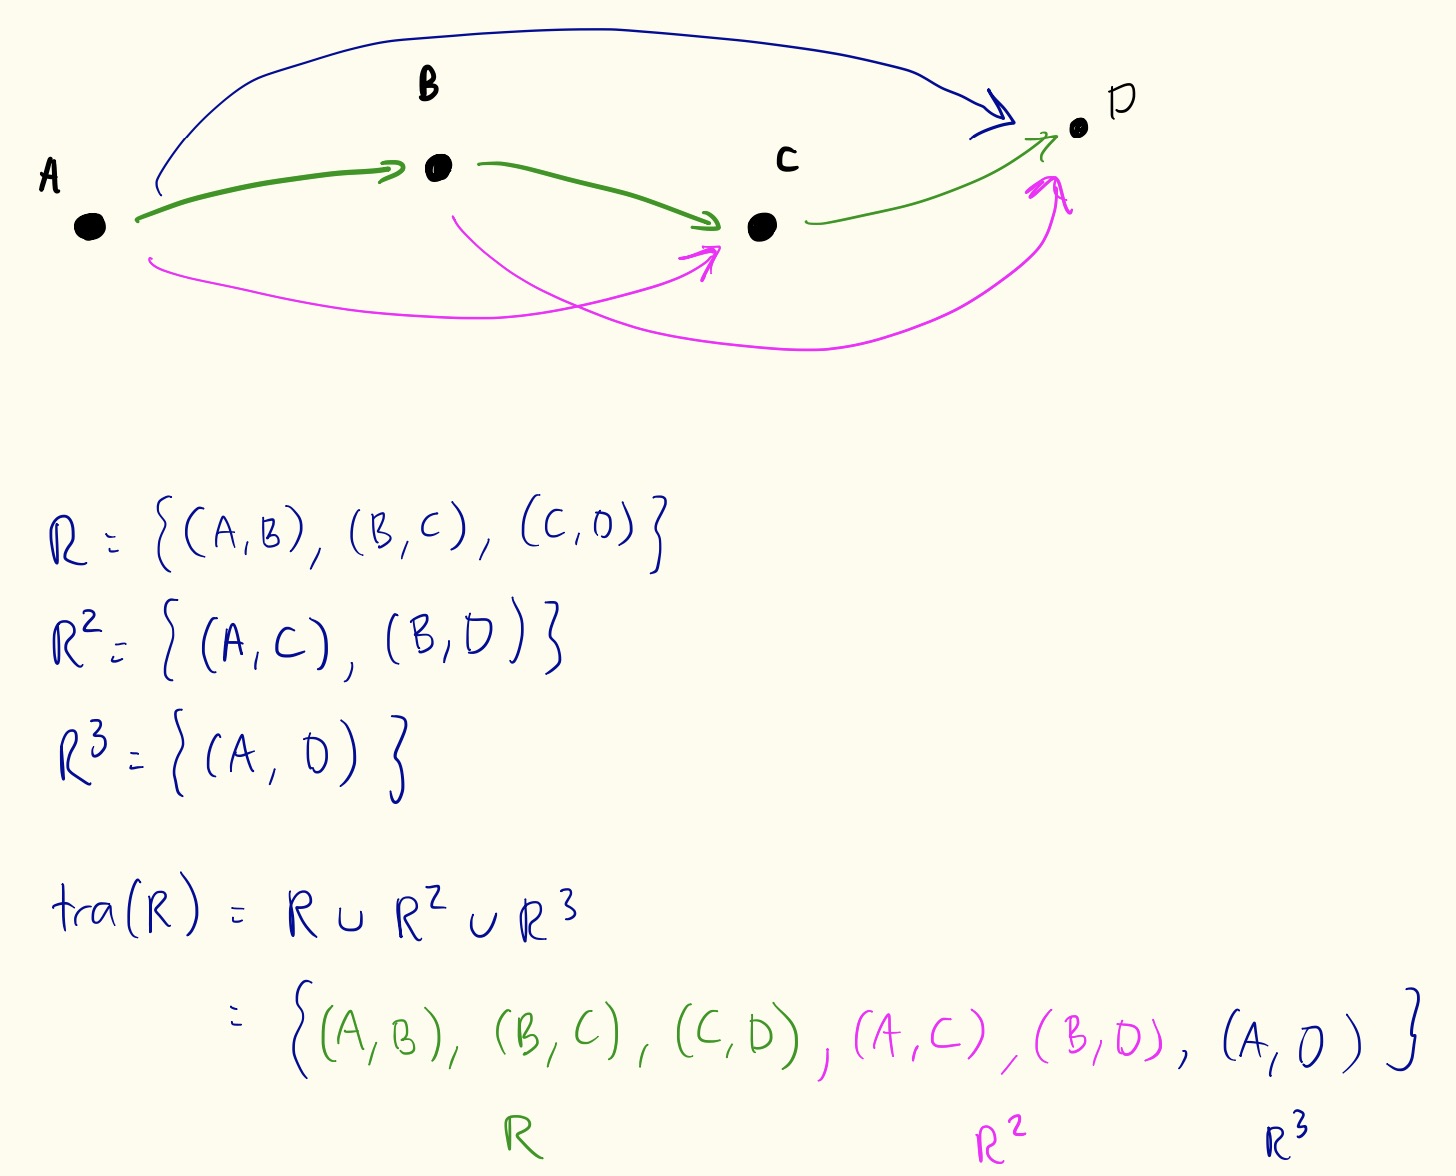 B
D
A
C
R = {(A,B), (B,C), (C,D)}
R² = {(A,C), (B,D)}
R³ = {(A, D)}
tra(R) = R ∪ R² ∪ R³
= {(A,B), (B,C), (C,D), (A,C), (B,D), (A,D)}
R R² R³